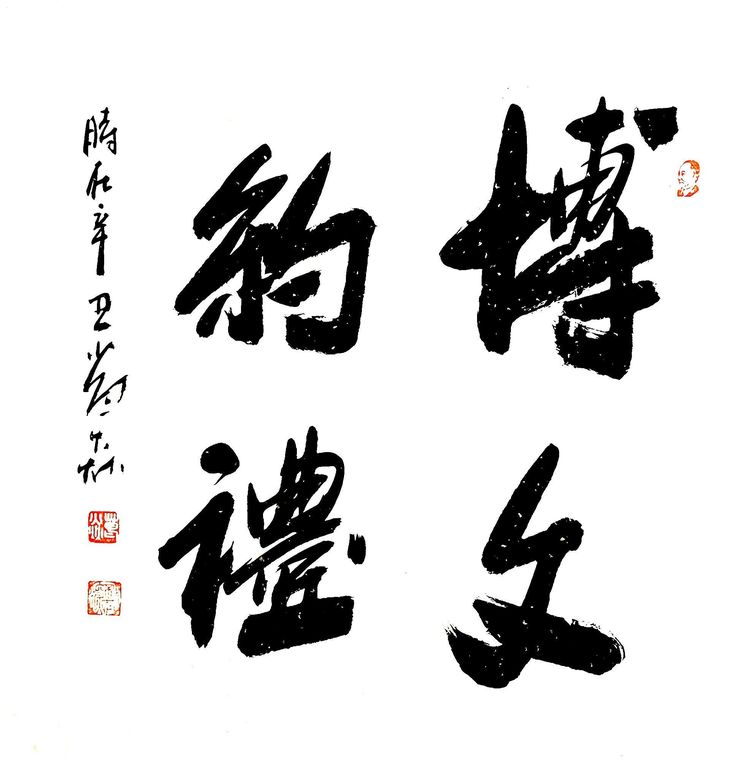 博文
約禮
時在辛丑